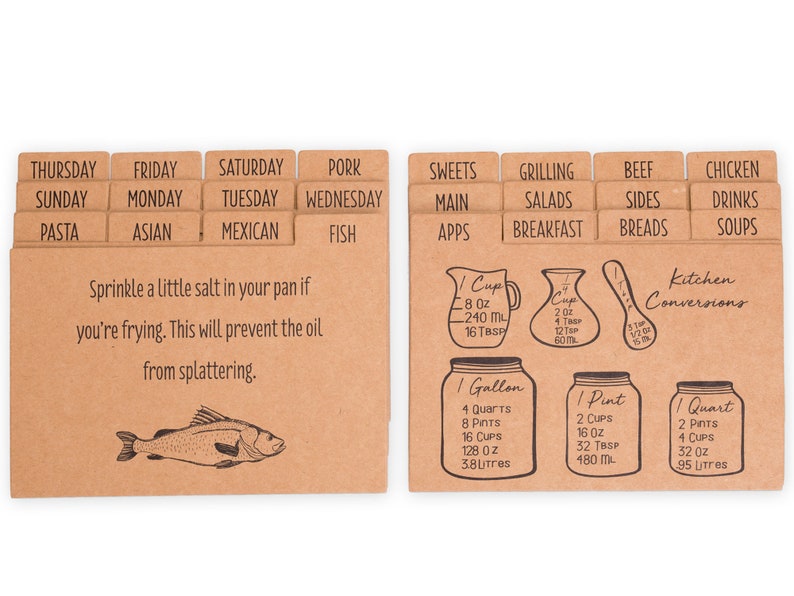 THURSDAY FRIDAY SATURDAY PORK
SUNDAY MONDAY TUESDAY WEDNESDAY
PASTA ASIAN MEXICAN FISH
Sprinkle a little salt in your pan if
you're frying. This will prevent the oil
from splattering.
SWEETS GRILLING BEEF CHICKEN
MAIN SALADS SIDES DRINKS
APPS BREAKFAST BREADS SOUPS
1 Cup
8 Oz
240 ML
16 TBSP
1/4
Cup
2 Oz
4 TBSP
12 TSP
60 ML
1 T.
3 TSP
1/2 Oz
15 ML
Kitchen
Conversions
1 Gallon
4 QUARTS
8 PINTS
16 CUPS
128 OZ
3.8 LITRES
1 Pint
2 CUPS
16 OZ
32 TBSP
480 ML
1 Quart
2 PINTS
4 CUPS
32 OZ
.95 LITRES